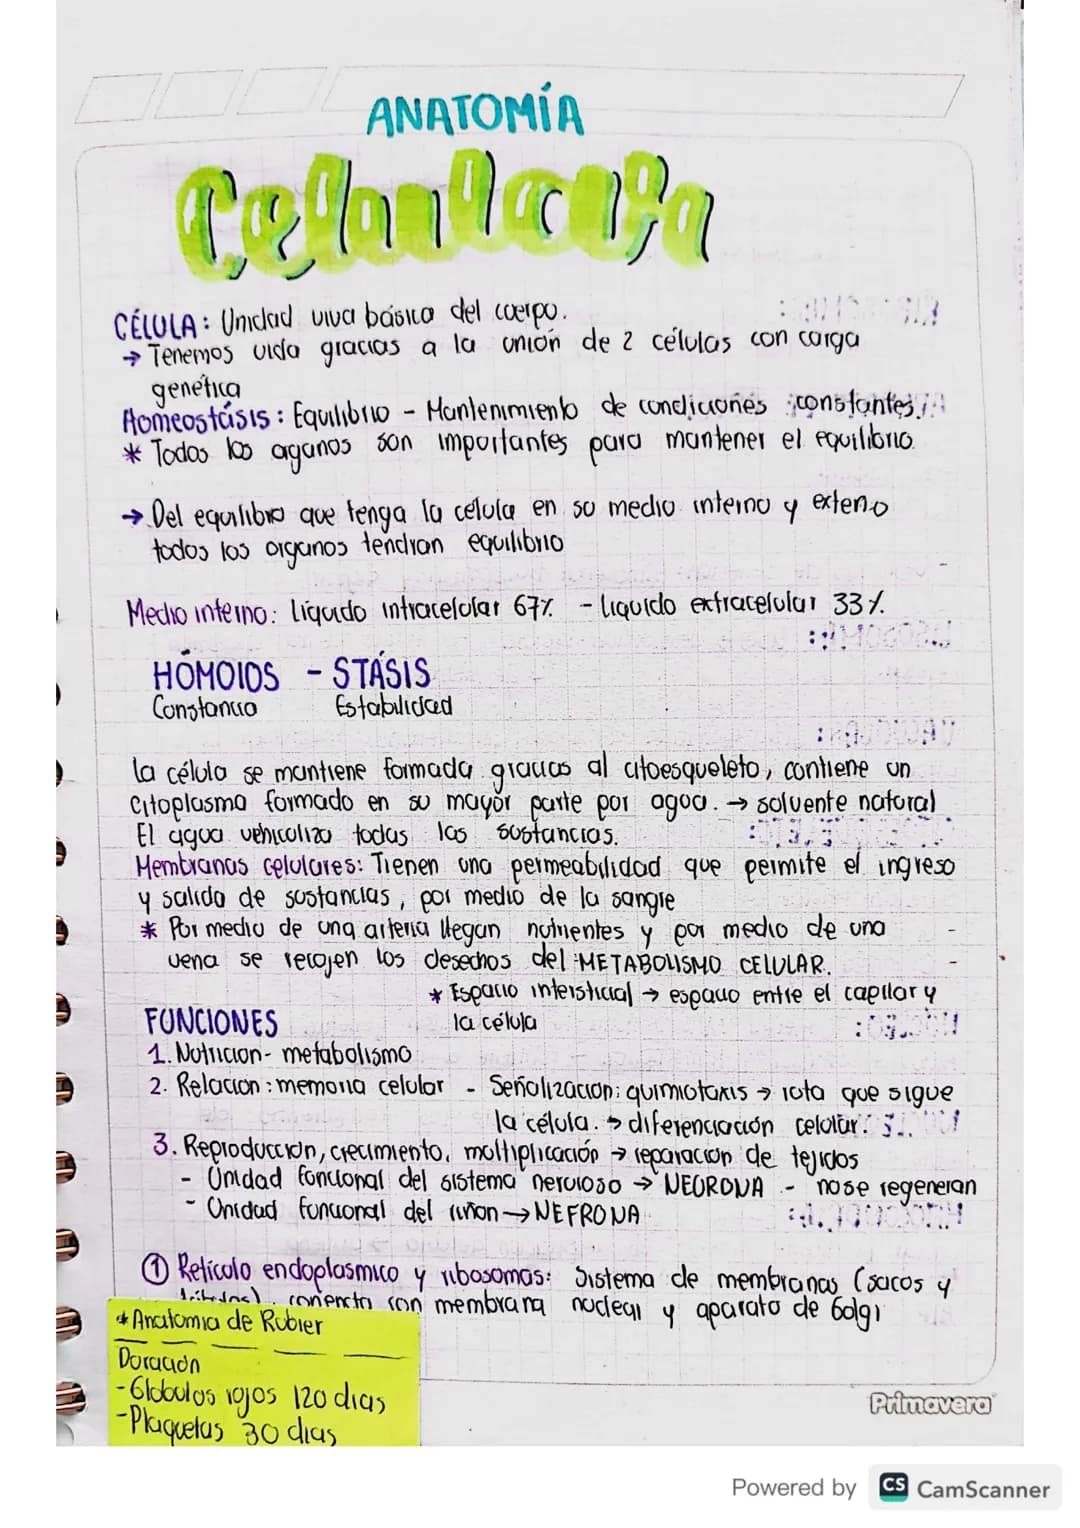 ANATOMÍA
Celular
CÉLULA: Unidad viva básica del cuerpo.
→ Tenemos vida gracias a la unión de 2 células con carga
genética
Homeostásis: Equilibrio - Mantenimiento de condiciones constantes.
* Todos los organos son importantes para mantener el equilibrio.
→ Del equilibrio que tenga la célula en su medio interno y externo
todos los organos tendran equilibrio
Medio interno: Líquido intracelular 67% - Liquido extracelular 33%.
HÓMOIOS - STÁSIS
Constancia Estabilidad
la célula se mantiene formada gracias al citoesqueleto, contiene un
Citoplasma formado en su mayor parte por agua. → solvente natural
El agua vehiculiza todas las sustancias.
Membranas celulares: Tienen una permeabilidad que permite el ingreso
y salida de sustancias, por medio de la sangre
* Por medio de una arteria llegan nutrientes y por medio de una
vena se recojen los desechos del METABOLISMO CELULAR.
* Espacio intersticial → espacio entre el capilar y
la célula
FUNCIONES
1. Nutricion - metabolismo
2. Relacion: memoria celular - Señalizacion: quimiotaxis → ruta que sigue
la célula. → diferenciación celular.
3. Reproduccion, crecimiento, multiplicación → reparacion de tejidos
- Unidad funcional del sistema nervioso → NEURONA - no se regeneran
- Unidad funcional del riñon → NEFRONA
① Retículo endoplasmico y ribosomas: Sistema de membranas (sacos y
conencta con membrana nuclear y aparato de Golgi
* Anatomia de Rubier
Duración
- Globulos rojos 120 dias
- Plaquetas 30 dias
Primavera
Powered by CS CamScanner